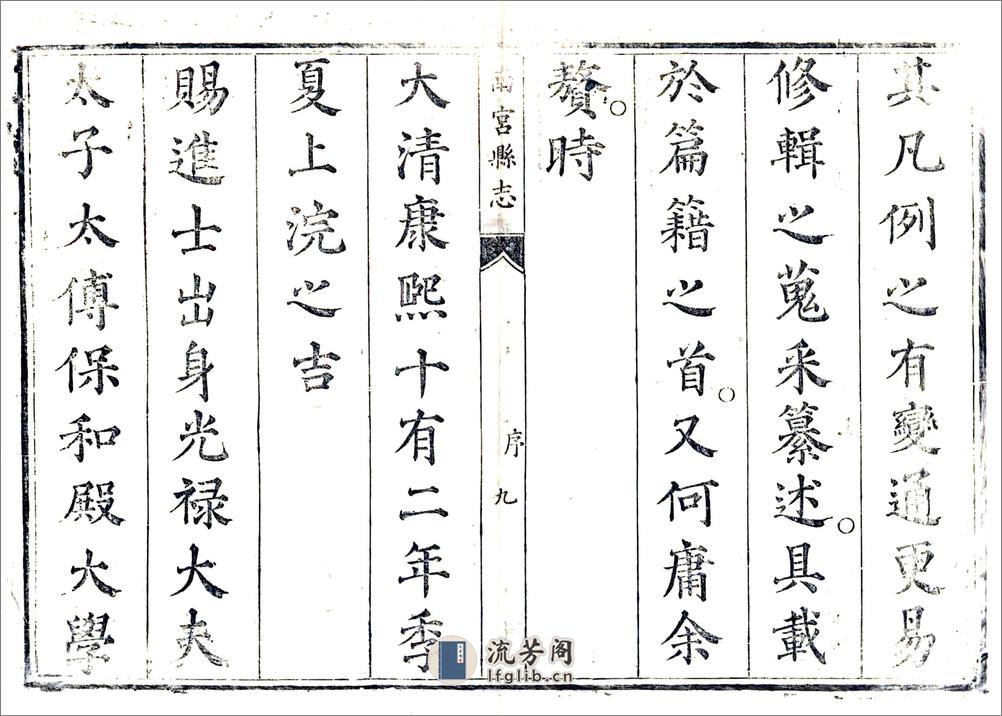 其凡例之有變通更易
修輯之蒐采纂述。具載
於篇籍之首。又何庸余
贅。時
南宮縣志
序
九
大清康熙十有二年季
夏上浣之吉
賜進士出身光祿大夫
太子太傅保和殿大學
流芳阁
lfglib.cn